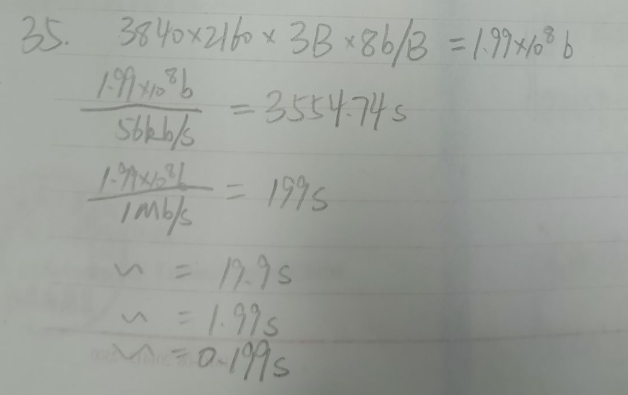 35. 3840×2160 × 3B × 8b/B = 1.99×10⁸ b
1.99×10⁸b / 56kb/s = 3554.74s
1.99×10⁸b / 1Mb/s = 199s
~ = 19.9s
~ = 1.99s
~ = 0.199s